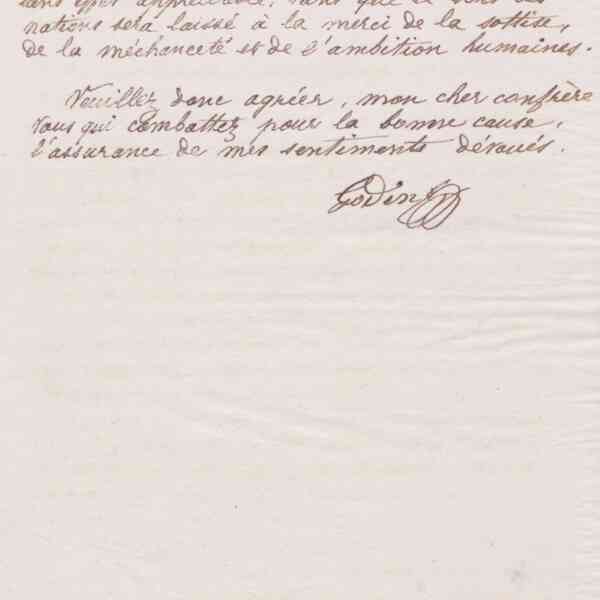 sans effet appréciable, tant que le sort des
nations sera laissé à la merci de la sottise,
de la méchanceté et de l'ambition humaines.
Veuillez donc agréer, mon cher confrère
vous qui combattez pour la bonne cause,
l'assurance de mes sentiments dévoués.
Godin